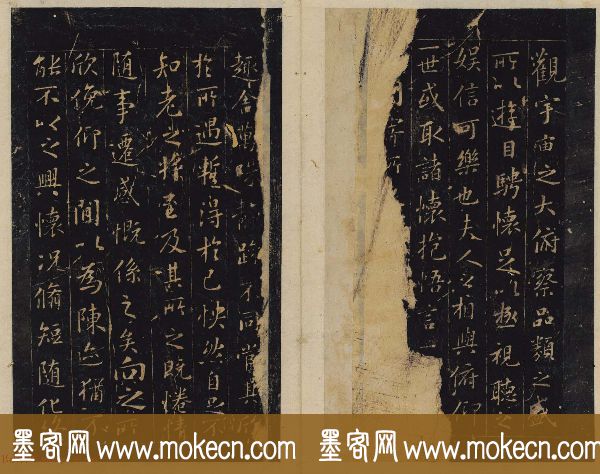 觀宇宙之大俯察品類之盛
所以遊目騁懷足以極視聽之
娛信可樂也夫人之相與俯仰
一世或取諸懷抱悟言一
因寄所
趣舍萬殊靜躁不同當其欣
於所遇暫得於己快然自足不
知老之將至及其所之既惓情
隨事遷感慨係之矣向之所
欣俛仰之間以為陳迹猶不
能不以之興懷況脩短隨化
墨客网 www.mokecn.com
墨客网 www.mokecn.com